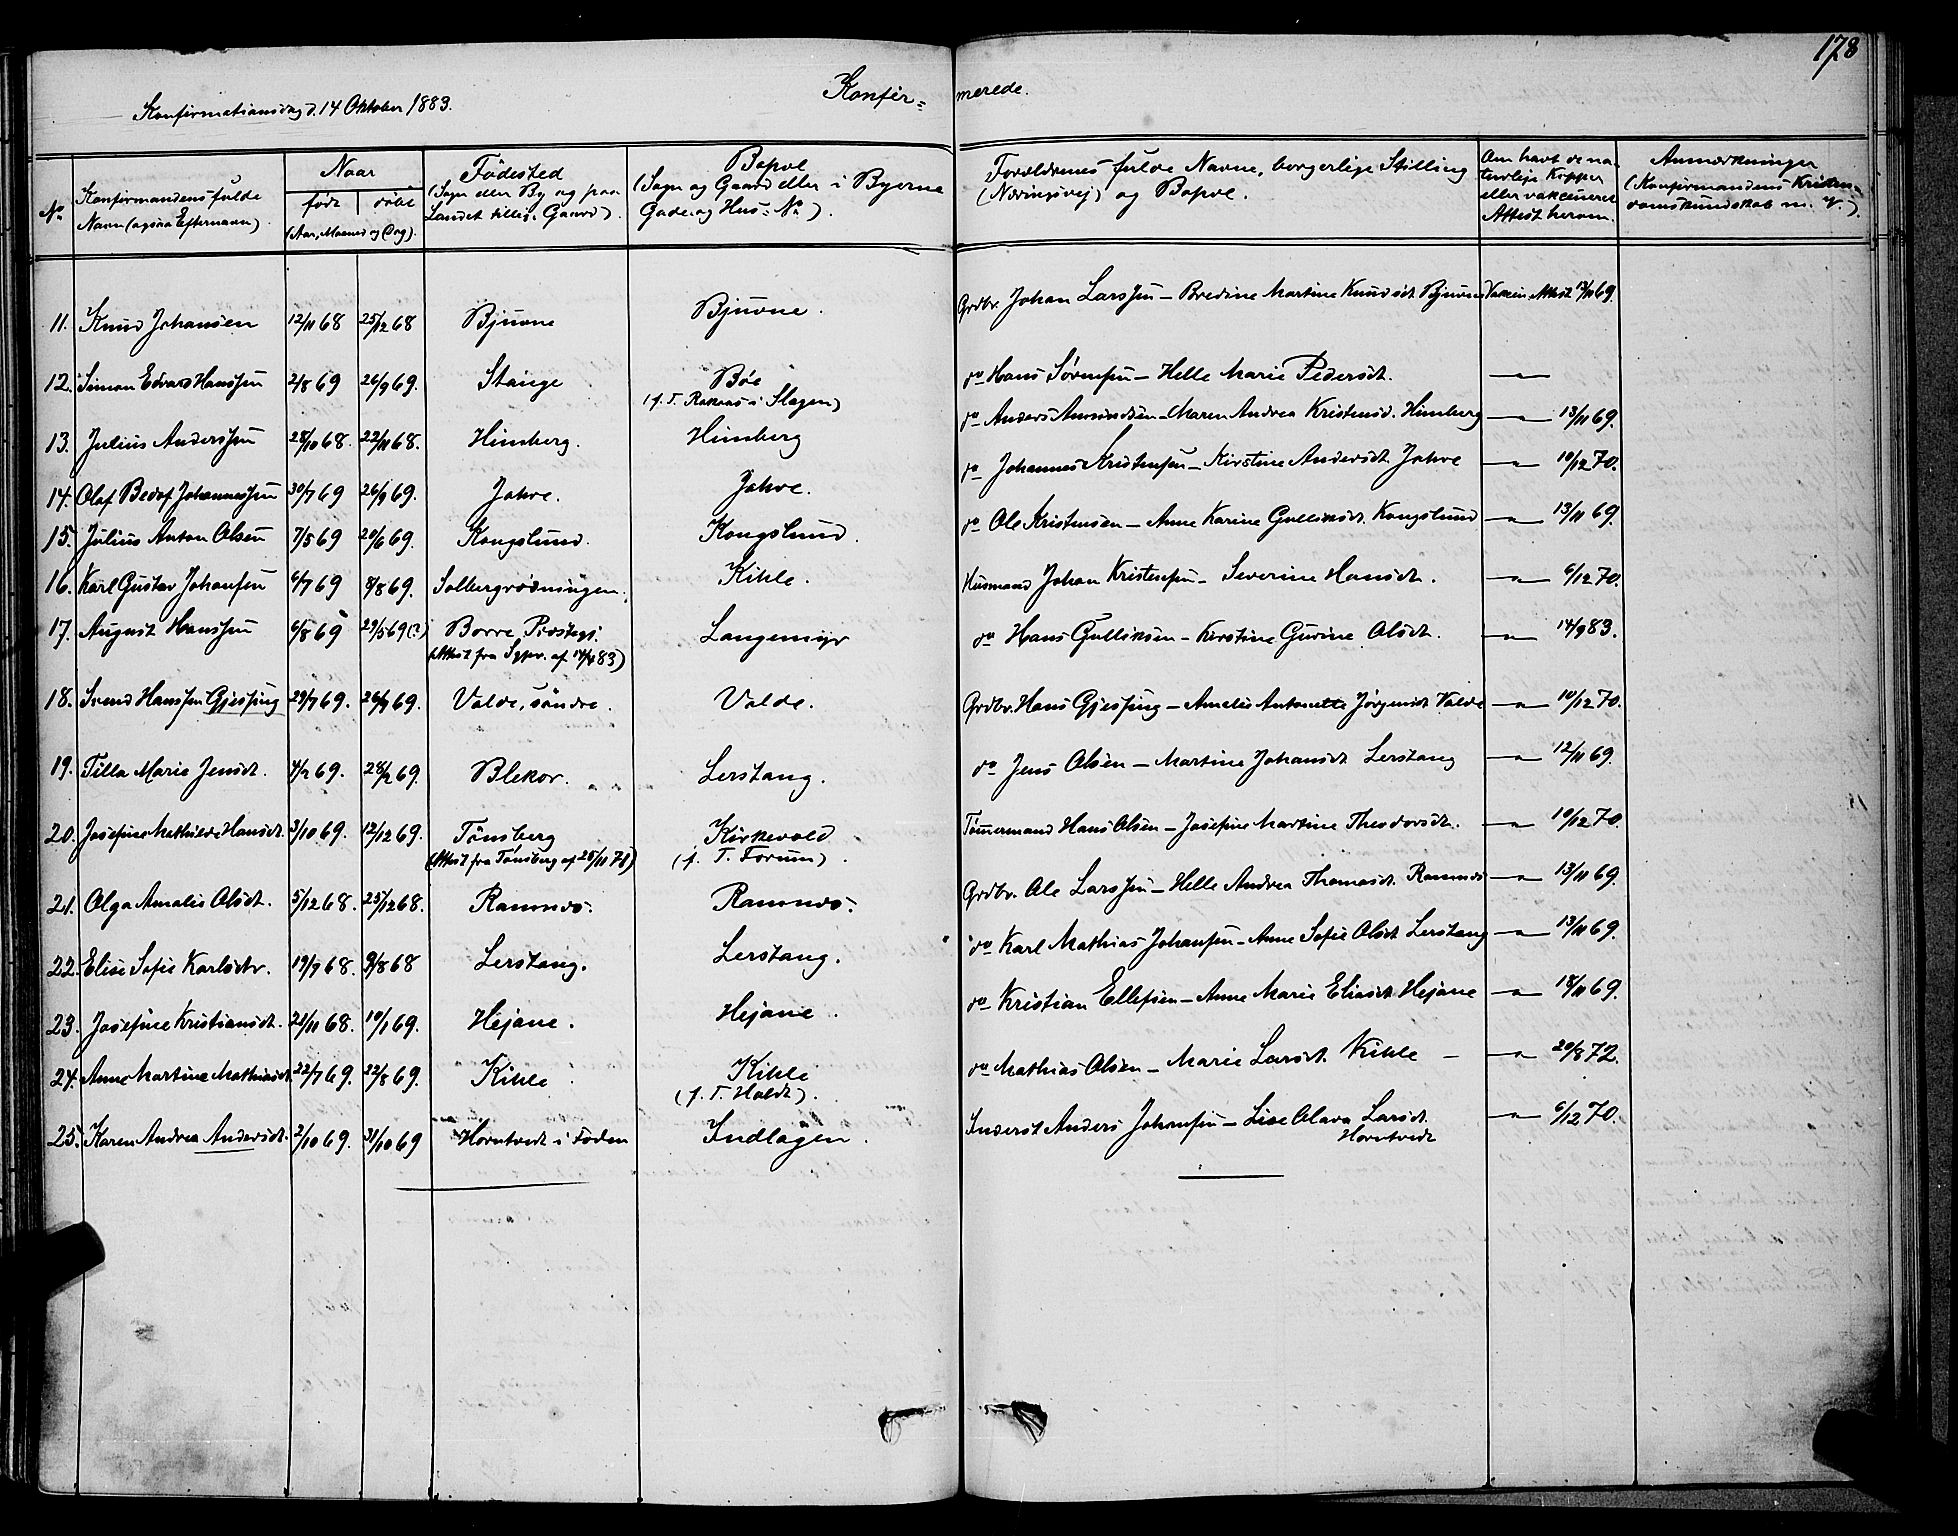 178
Konfir= merede.
Konfirmationsdag d. 14 Oktober 1883.
No
Konfirmandens fulde
Navn (ogsaa Efternavn).
Naar
født | döbt
(Aar, Maaned og Dag).
Födested
(Sogn eller By og paa
Landet tillige Gaard).
Bopæl
(Sogn og Gaard eller i Byerne
Gade og Hus=No).
Forældrenes fulde Navne, borgerlige Stilling
(Næringsvej) og Bopæl.
Om havt de na-
turlige Kopper
eller vakcineret
Attest herom.
Anmærkninger
(Konfirmandens Kristen-
domskundskab m. v.).
11. Knud Johansen 12/11 68 25/12 68 Bjuvne Bjuvne. Grdbr. Johan Larssen – Bredine Martine Knudsdt Bjuvne Vakcin. Attest 13/11 69.
12. Simon Edvard Hanssen 2/8 69 26/9 69. Stange Böe do Hans Sørensen – Helle Marie Pedersdt. –"–
(f. T. Raknæs i Slagen)
13. Julius Anderssen 28/10 68. 22/11 68. Himberg. Himberg do Anders Amundsen – Maren Andrea Kristensd. Himberg –"– 13/11 69.
14. Olaf Bedof Johannessen 30/7 69 26/9 69. Jahre. Jahre. do Johannes Kristensen – Kirstine Andersdt. Jahre –"– 10/12 70.
15. Julius Anton Olsen 7/5 69 20/6 69. Kongslund. Kongslund. do Ole Kristensen – Anne Karine Gulliksdt. Kongslund –"– 13/11 69.
16. Karl Gustav Johansen 6/7 69 8/8 69. Solbergrødningen. Kihle. Husmand Johan Kristensen – Severine Hansdt. –"– 6/12 70.
17. August Hanssen 6/8 69 29/5 69 (?) Borre Præstegj. Langemyr do Hans Gulliksen – Kirstine Gurine Olsdt. –"– 14/9 83.
(Attest fra Sgpr. af 14/9 83)
18. Svend Hanssen Gjessing 29/7 69. 26/9 69. Valde, søndre. Valde. Grdbr. Hans Gjessing – Amelie Antonette Jörgensdt Valde –"– 10/12 70.
19. Tilla Marie Jensdt. 4/2 69. 28/2 69. Blekor. Lerstang. do Jens Olsen – Martine Johansdt Lerstang –"– 12/11 69.
20. Josefine Mathilde Hansdt. 3/10 69. 12/12 69. Tönsberg Kirkevold Tømmermand Hans Olsen – Josefine Martine Theodorsdt. –"– 10/12 70.
(Attest fra Tønsberg af 25/11 78) (f. T. Forum).
21. Olga Amalie Olsdt. 5/12 68. 25/12 68. Ramnæs. Ramnæs. Grdbr. Ole Larssen – Helle Andrea Thomasdt. Ramnæs –"– 13/11 69.
22. Elise Sofie Karlsdtr. 19/7 68. 9/8 68 Lerstang. Lerstang. do Karl Mathias Johansen – Anne Sofie Olsdt Lerstang –"– 13/11 69.
23. Josefine Kristiansdt. 21/11 68. 10/1 69. Hejane. Hejane. do Kristian Ellefsen – Anne Marie Eliasdt Hejane –"– 18/11 69.
24. Anne Martine Mathiasdt. 22/7 69. 22/8 69. Kihle. Kihle do Mathias Olsen – Marie Larsdt. Kihle –"– 20/8 72.
(f. T. Holdt).
25. Karen Andrea Andersdt. 2/10 69. 31/10 69 Horntvedt i Foden Indlagen. Inderst Anders Johansen – Lise Olava Larsdt. –"– 6/12 70.
Horntvedt